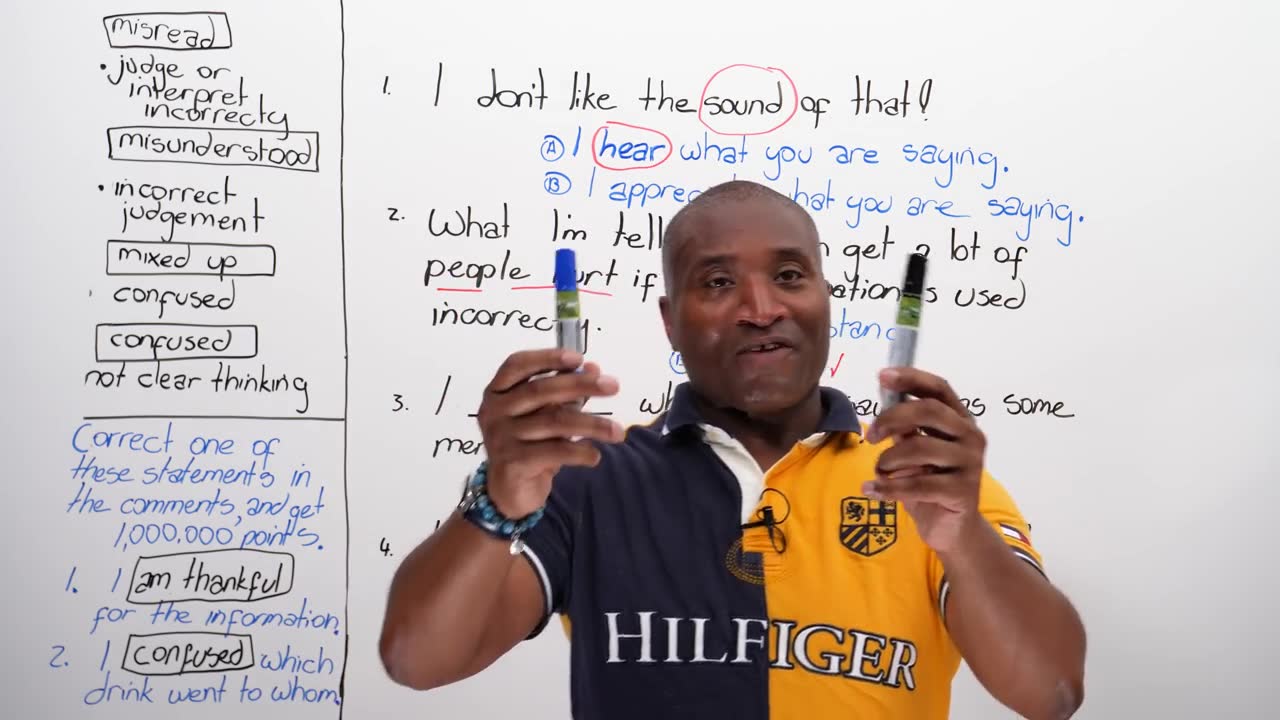 misread
• judge or
interpret
incorrecty
misunderstood
• incorrect
judgement
mixed up
confused
confused
not clear thinking
Correct one of
these statements in
the comments, and get
1,000,000 points.
1. I am thankful
for the information.
2. I confused which
drink went to whom.
1. I don't like the sound of that!
A I hear what you are saying.
B I what you are saying.
2. What I'm get a lot of
people hurt if is used
incorrectly.
3. I some
4.
HILFIGER